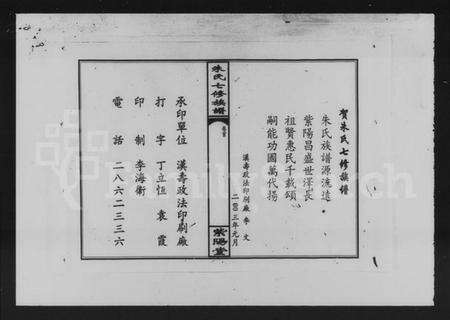 賀朱氏七修族譜
朱氏族譜源流遠
紫陽昌盛世澤長
祖賢惠民千載頌
嗣能功國萬代揚
漢壽政法印刷廠 李文
二〇〇三年元月
朱氏七修族譜
卷首
紫陽堂
承印單位 漢壽政法印刷廠
打字 丁立恆 袁霞
印制 李海衛
電話 二八六二三三六